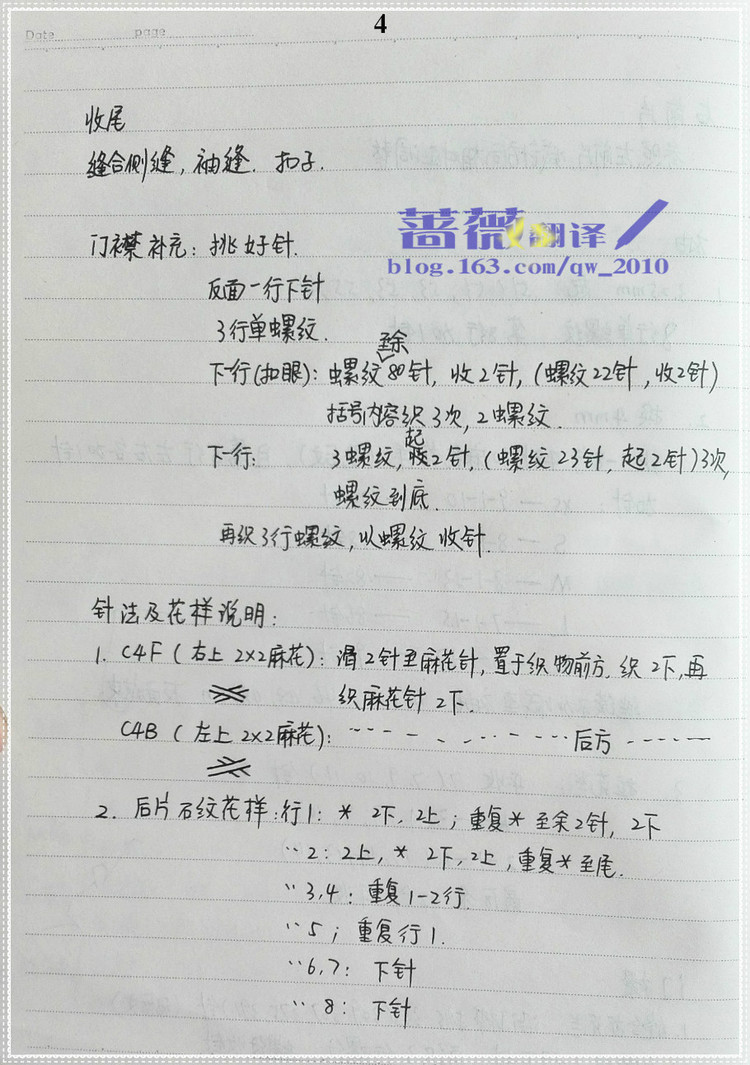 4
Date page
收尾
缝合侧缝,袖缝.扣子.
蔷薇翻译
blog.163.com/qw_2010
门襟补充:挑好针.
反面一行下针
3行单螺纹.
至余
下一行(扣眼):螺纹80针,收2针,(螺纹22针,收2针)
括号内容织3次,2螺纹.
起
下一行: 3螺纹,2针,(螺纹23针,起2针)3次,
螺纹到底.
再织3行螺纹,以螺纹收针.
针法及花样说明:
1. C4F(右上2×2麻花):滑2针至麻花针,置于织物前方.织2下,再
织麻花针2下.
C4B(左上2×2麻花): ---------- 后方 ------
2. 后片石纹花样:行1: * 2下,2上;重复*至余2针,2下
〃2:2上,* 2下,2上,重复*至尾.
〃3,4:重复1-2行.
〃5;重复行1.
〃6,7: 下针
〃8: 下针